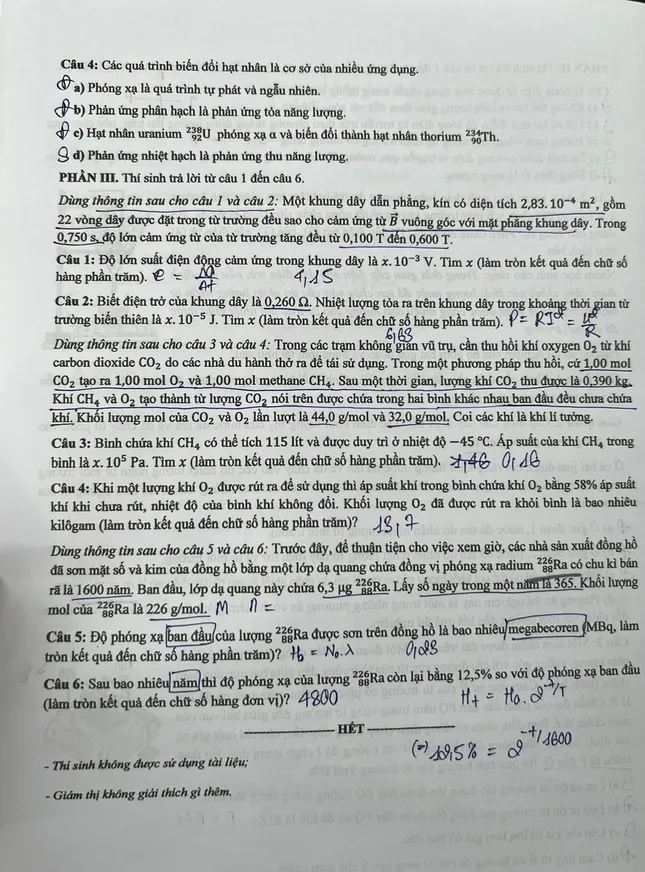 Câu 4: Các quá trình biến đổi hạt nhân là cơ sở của nhiều ứng dụng.
Đ a) Phóng xạ là quá trình tự phát và ngẫu nhiên.
Đ b) Phản ứng phân hạch là phản ứng tỏa năng lượng.
Đ c) Hạt nhân uranium ²³⁸₉₂U phóng xạ α và biến đổi thành hạt nhân thorium ²³⁴₉₀Th.
S d) Phản ứng nhiệt hạch là phản ứng thu năng lượng.
PHẦN III. Thí sinh trả lời từ câu 1 đến câu 6.
Dùng thông tin sau cho câu 1 và câu 2: Một khung dây dẫn phẳng, kín có diện tích 2,83. 10⁻⁴ m², gồm
22 vòng dây được đặt trong từ trường đều sao cho cảm ứng từ B⃗ vuông góc với mặt phẳng khung dây. Trong
0,750 s, độ lớn cảm ứng từ của từ trường tăng đều từ 0,100 T đến 0,600 T.
Câu 1: Độ lớn suất điện động cảm ứng trong khung dây là x. 10⁻³ V. Tìm x (làm tròn kết quả đến chữ số
hàng phần trăm). e = ΔΦ/Δt 4,15
Câu 2: Biết điện trở của khung dây là 0,260 Ω. Nhiệt lượng tỏa ra trên khung dây trong khoảng thời gian từ
trường biến thiên là x. 10⁻⁵ J. Tìm x (làm tròn kết quả đến chữ số hàng phần trăm). P = RI² = U²/R
Dùng thông tin sau cho câu 3 và câu 4: Trong các trạm không gian vũ trụ, cần thu hồi khí oxygen O₂ từ khí
carbon dioxide CO₂ do các nhà du hành thở ra để tái sử dụng. Trong một phương pháp thu hồi, cứ 1,00 mol
CO₂ tạo ra 1,00 mol O₂ và 1,00 mol methane CH₄. Sau một thời gian, lượng khí CO₂ thu được là 0,390 kg.
Khí CH₄ và O₂ tạo thành từ lượng CO₂ nói trên được chứa trong hai bình khác nhau ban đầu đều chưa chứa
khí. Khối lượng mol của CO₂ và O₂ lần lượt là 44,0 g/mol và 32,0 g/mol. Coi các khí là khí lí tưởng.
Câu 3: Bình chứa khí CH₄ có thể tích 115 lít và được duy trì ở nhiệt độ −45 °C. Áp suất của khí CH₄ trong
bình là x. 10⁵ Pa. Tìm x (làm tròn kết quả đến chữ số hàng phần trăm). 1,46 0,16
Câu 4: Khi một lượng khí O₂ được rút ra để sử dụng thì áp suất khí trong bình chứa khí O₂ bằng 58% áp suất
khí khi chưa rút, nhiệt độ của bình khí không đổi. Khối lượng O₂ đã được rút ra khỏi bình là bao nhiêu
kilôgam (làm tròn kết quả đến chữ số hàng phần trăm)? 13,7
Dùng thông tin sau cho câu 5 và câu 6: Trước đây, để thuận tiện cho việc xem giờ, các nhà sản xuất đồng hồ
đã sơn mặt số và kim của đồng hồ bằng một lớp dạ quang chứa đồng vị phóng xạ radium ²²⁶₈₈Ra có chu kì bán
rã là 1600 năm. Ban đầu, lớp dạ quang này chứa 6,3 μg ²²⁶₈₈Ra. Lấy số ngày trong một năm là 365. Khối lượng
mol của ²²⁶₈₈Ra là 226 g/mol. M n =
Câu 5: Độ phóng xạ ban đầu của lượng ²²⁶₈₈Ra được sơn trên đồng hồ là bao nhiêu megabecoren (MBq, làm
tròn kết quả đến chữ số hàng phần trăm)? H₀ = N₀.λ 0,23
Câu 6: Sau bao nhiêu năm thì độ phóng xạ của lượng ²²⁶₈₈Ra còn lại bằng 12,5% so với độ phóng xạ ban đầu
(làm tròn kết quả đến chữ số hàng đơn vị)? 4800 Ht = H₀. 2^-t/T
HẾT
(=) 12,5% = 2^-t/1600
- Thí sinh không được sử dụng tài liệu;
- Giám thị không giải thích gì thêm.